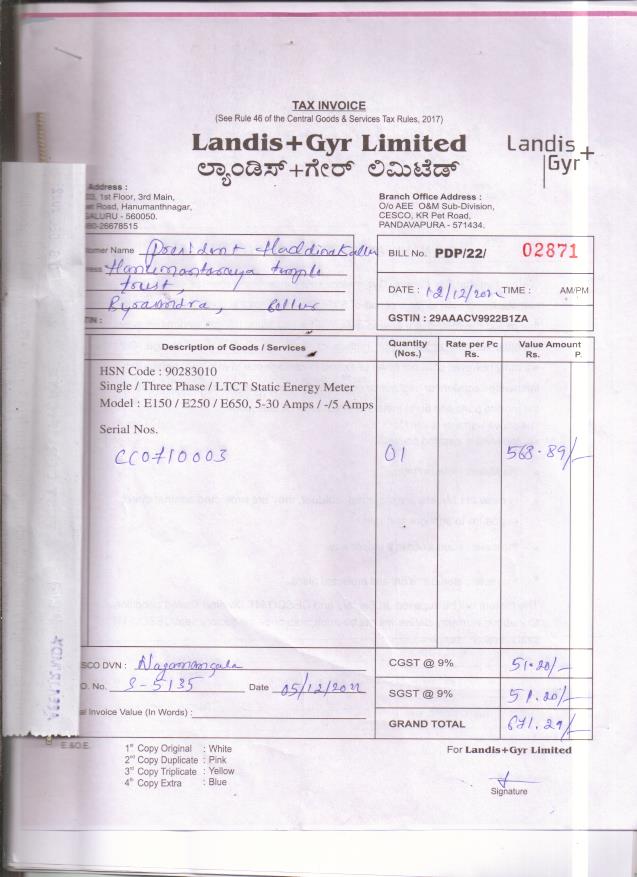 TAX INVOICE
(See Rule 46 of the Central Goods & Services Tax Rules, 2017)
Landis+Gyr Limited
ಲ್ಯಾಂಡಿಸ್+ಗೇರ್ ಲಿಮಿಟೆಡ್
Landis+
Gyr
Address :
1st Floor, 3rd Main,
Road, Hanumanthnagar,
GALURU - 560050.
080-26678515
Branch Office Address :
O/o AEE O&M Sub-Division,
CESCO, KR Pet Road,
PANDAVAPURA - 571434.
tomer Name President
Hanumantaraya temple
trust,
TIN :
BILL No. PDP/22/ 02871
DATE : 12/12/2022 TIME : AM/PM
GSTIN : 29AAACV9922B1ZA
Description of Goods / Services Quantity (Nos.) Rate per Pc Rs. Value Amount Rs. P.
HSN Code : 90283010
Single / Three Phase / LTCT Static Energy Meter
Model : E150 / E250 / E650, 5-30 Amps / -/5 Amps
Serial Nos.
CC0710003 01 568.89/-
SCO DVN : Nagamangala
CGST @ 9% 51.20/-
O. No. S-5135 Date 05/12/2022
SGST @ 9% 51.20/-
al Invoice Value (In Words) :
GRAND TOTAL 671.29/-
E.&O.E.
1st Copy Original : White
2nd Copy Duplicate : Pink
3rd Copy Triplicate : Yellow
4th Copy Extra : Blue
For Landis+Gyr Limited
Signature